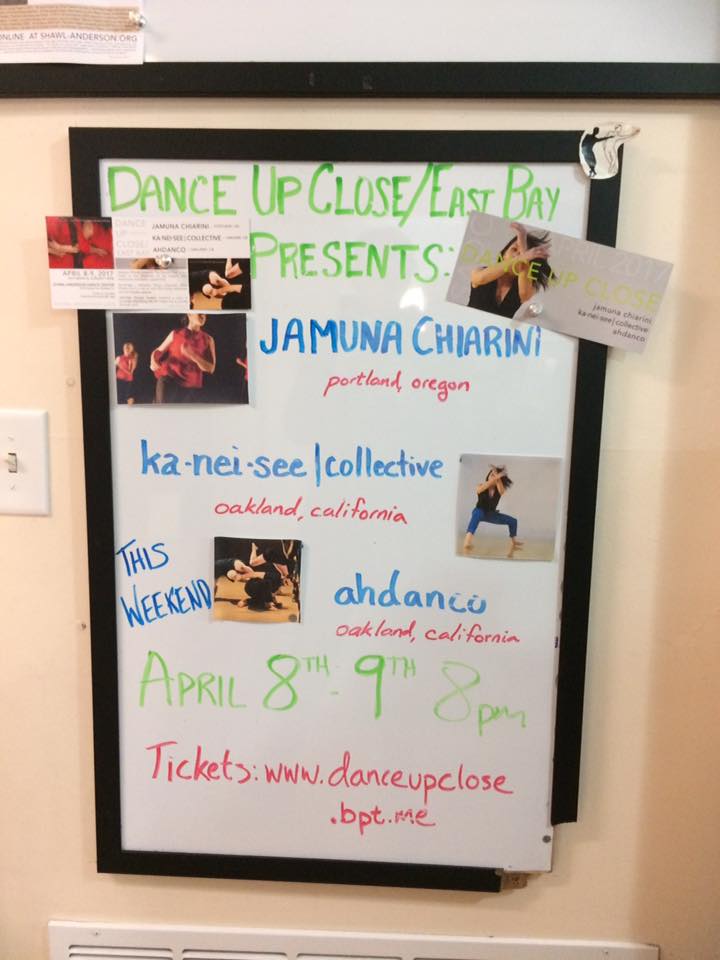 ONLINE AT SHAWL-ANDERSON.ORG
DANCE UP CLOSE/EAST BAY
PRESENTS:
DANCE
UP
CLOSE/
EAST BAY
JAMUNA CHIARINI
KA-NEI-SEE | COLLECTIVE
AHDANCO
APRIL 8-9, 2017
DANCE UP CLOSE
jamuna chiarini
ka-nei-see | collective
ahdanco
JAMUNA CHIARINI
portland, oregon
ka-nei-see | collective
oakland, california
THIS
WEEKEND
ahdanco
oakland, california
APRIL 8TH - 9TH 8pm
Tickets: www.danceupclose
.bpt.me